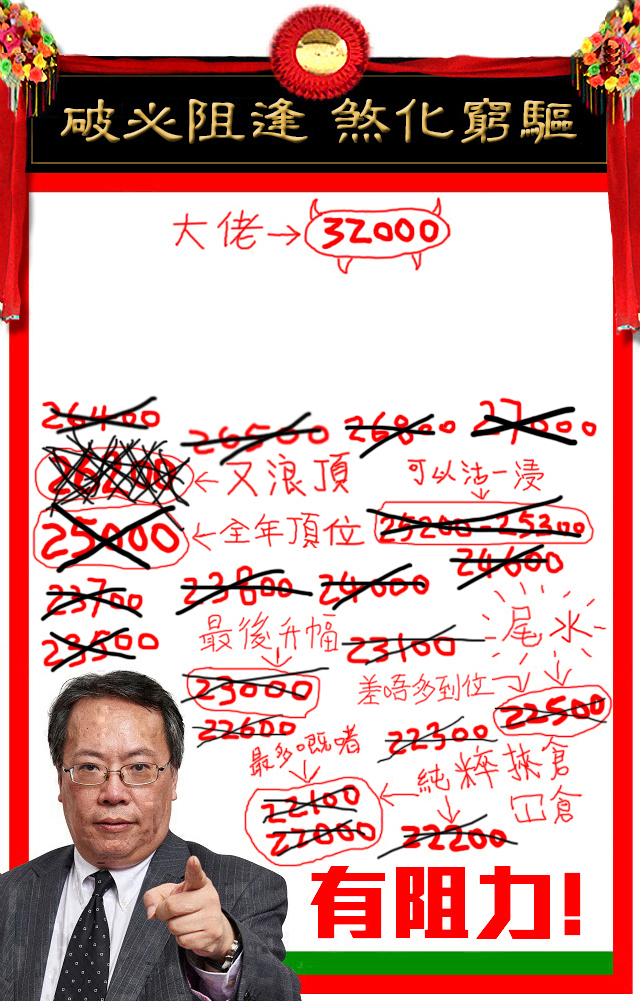 破必阻逢 煞化窮驅
大佬→32000
26400
26500
26800
27000
26200←又浪頂
可以沽一浸
25000←全年頂位
25200-25300
24600
23700
23800
24000
23500
最後升幅
23100
尾水
23000
差唔多到位
22500
22600
22300
最多嘅者
純粹挾倉
冚倉
22100
22000
22200
有阻力!